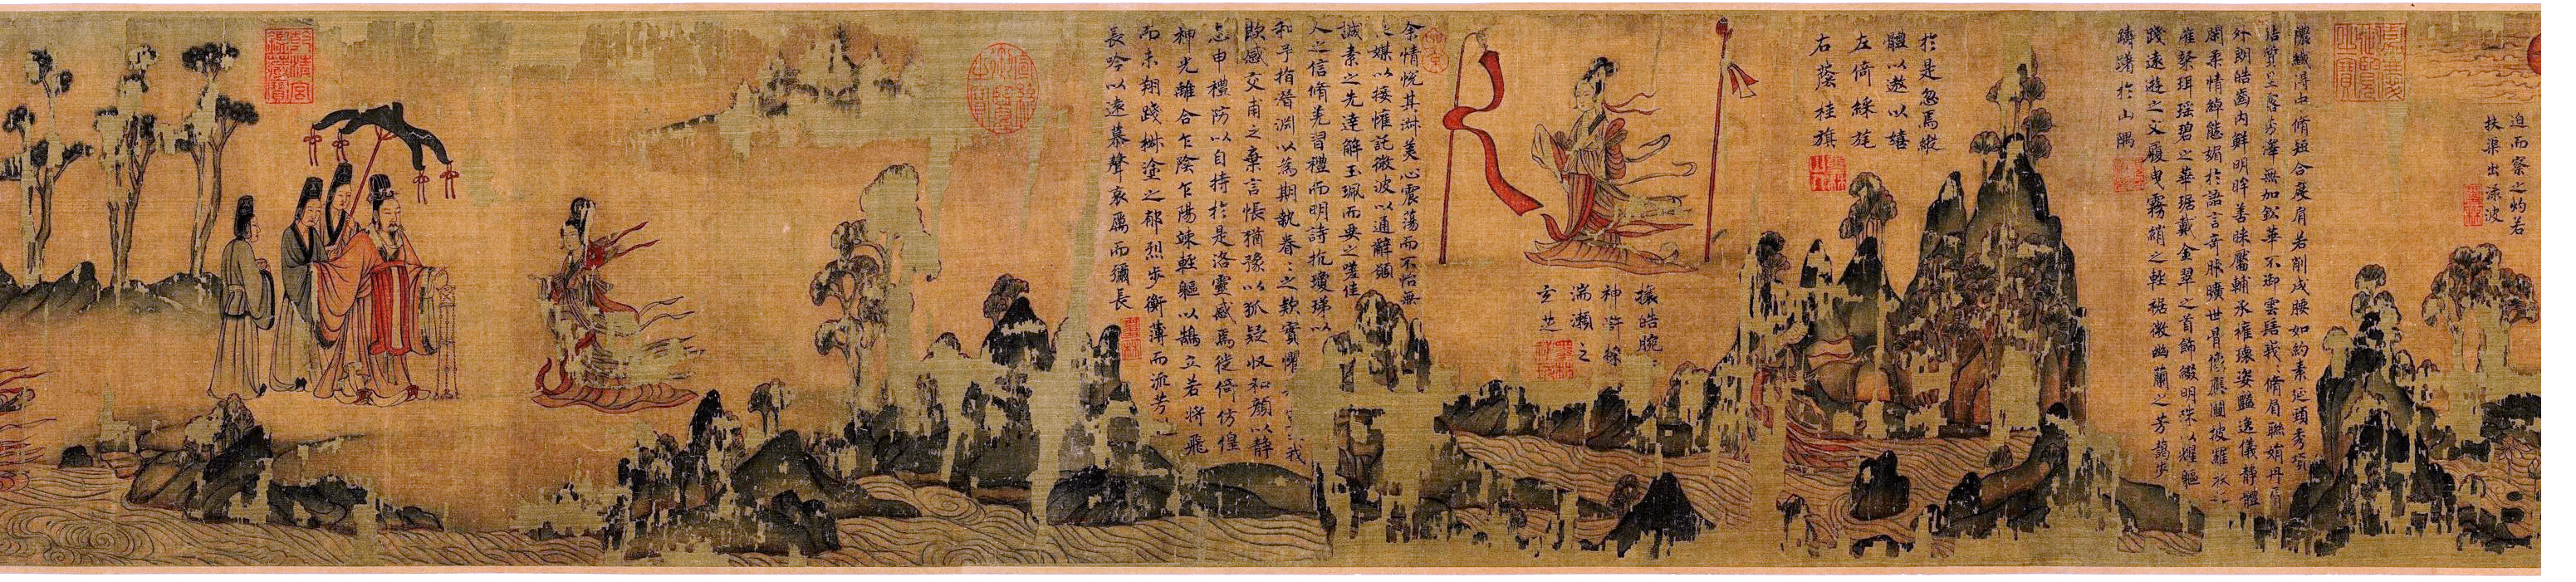 迫而察之灼若
扶渠出淥波
嘉慶御覽之寶
穠纖得中脩短合度肩若削成腰如約素延頸秀項
皓質呈露芳澤無加鉛華不御雲髻峩〻脩眉聯娟丹脣
外朗皓齒內鮮明眸善睞靨輔承權瓌姿豔逸儀靜體
閑柔情綽態媚於語言奇服曠世骨像應圖披羅衣之
璀粲珥瑶碧之華琚戴金翠之首飾綴明珠以耀軀
踐遠遊之文履曳霧綃之輕裾微幽蘭之芳藹步
踟躕於山隅
於是忽焉縱
體以遨以嬉
左倚綵旄
右蔭桂旗
攘皓腕〻
神滸採
湍瀨之
玄芝
余情悅其淑美心震蕩而不怡無
之媒以接懽託微波以通辭願
誠素之先達解玉珮而要之嗟佳
人之信脩羗習禮而明詩抗瓊珶以
和乎指潛淵以為期執眷〻之款實懼我
欺感交甫之棄言悵猶豫以狐疑收和顏以靜
志申禮防以自持於是洛靈感焉徙倚仿偟
神光離合乍陰乍陽竦輕軀以鵠立若將飛
而未翔踐椒塗之郁烈步蘅薄而流芳
長吟以遠慕聲哀厲而彌長
宣統御覽之寶
乾清宮鑑藏寶